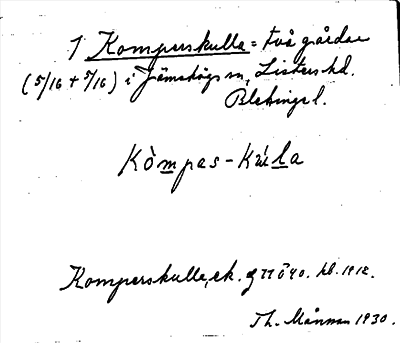 1 Komperskulla = två gårdar
(5/16 + 5/16) i Jämshögs sn, Listers hd.
Blekinge l.
Kòmpas-Kúla
Komperskulla, ek. hb. 1912.
Th. Månsson 1930.